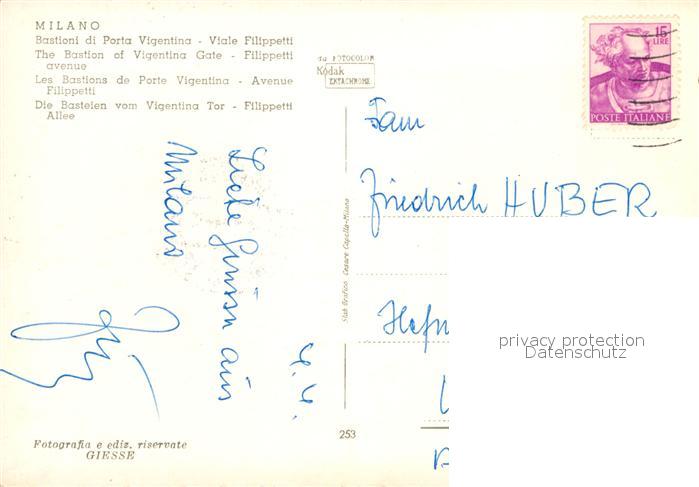 MILANO
Bastioni di Porta Vigentina - Viale Filippetti
The Bastion of Vigentina Gate - Filippetti
avenue
Les Bastions de Porte Vigentina - Avenue
Filippetti
Die Basteien vom Vigentina Tor - Filippetti
Allee
da FOTOCOLOR
Kodak
EKTACHROME
15
LIRE
POSTE ITALIANE
Fam
Friedrich HUBER
Hofn
Liebe Grüsse aus
Milano
Stab Grafico Cesare Capello-Milano
privacy protection
Datenschutz
253
Fotografia e ediz. riservate
GIESSE